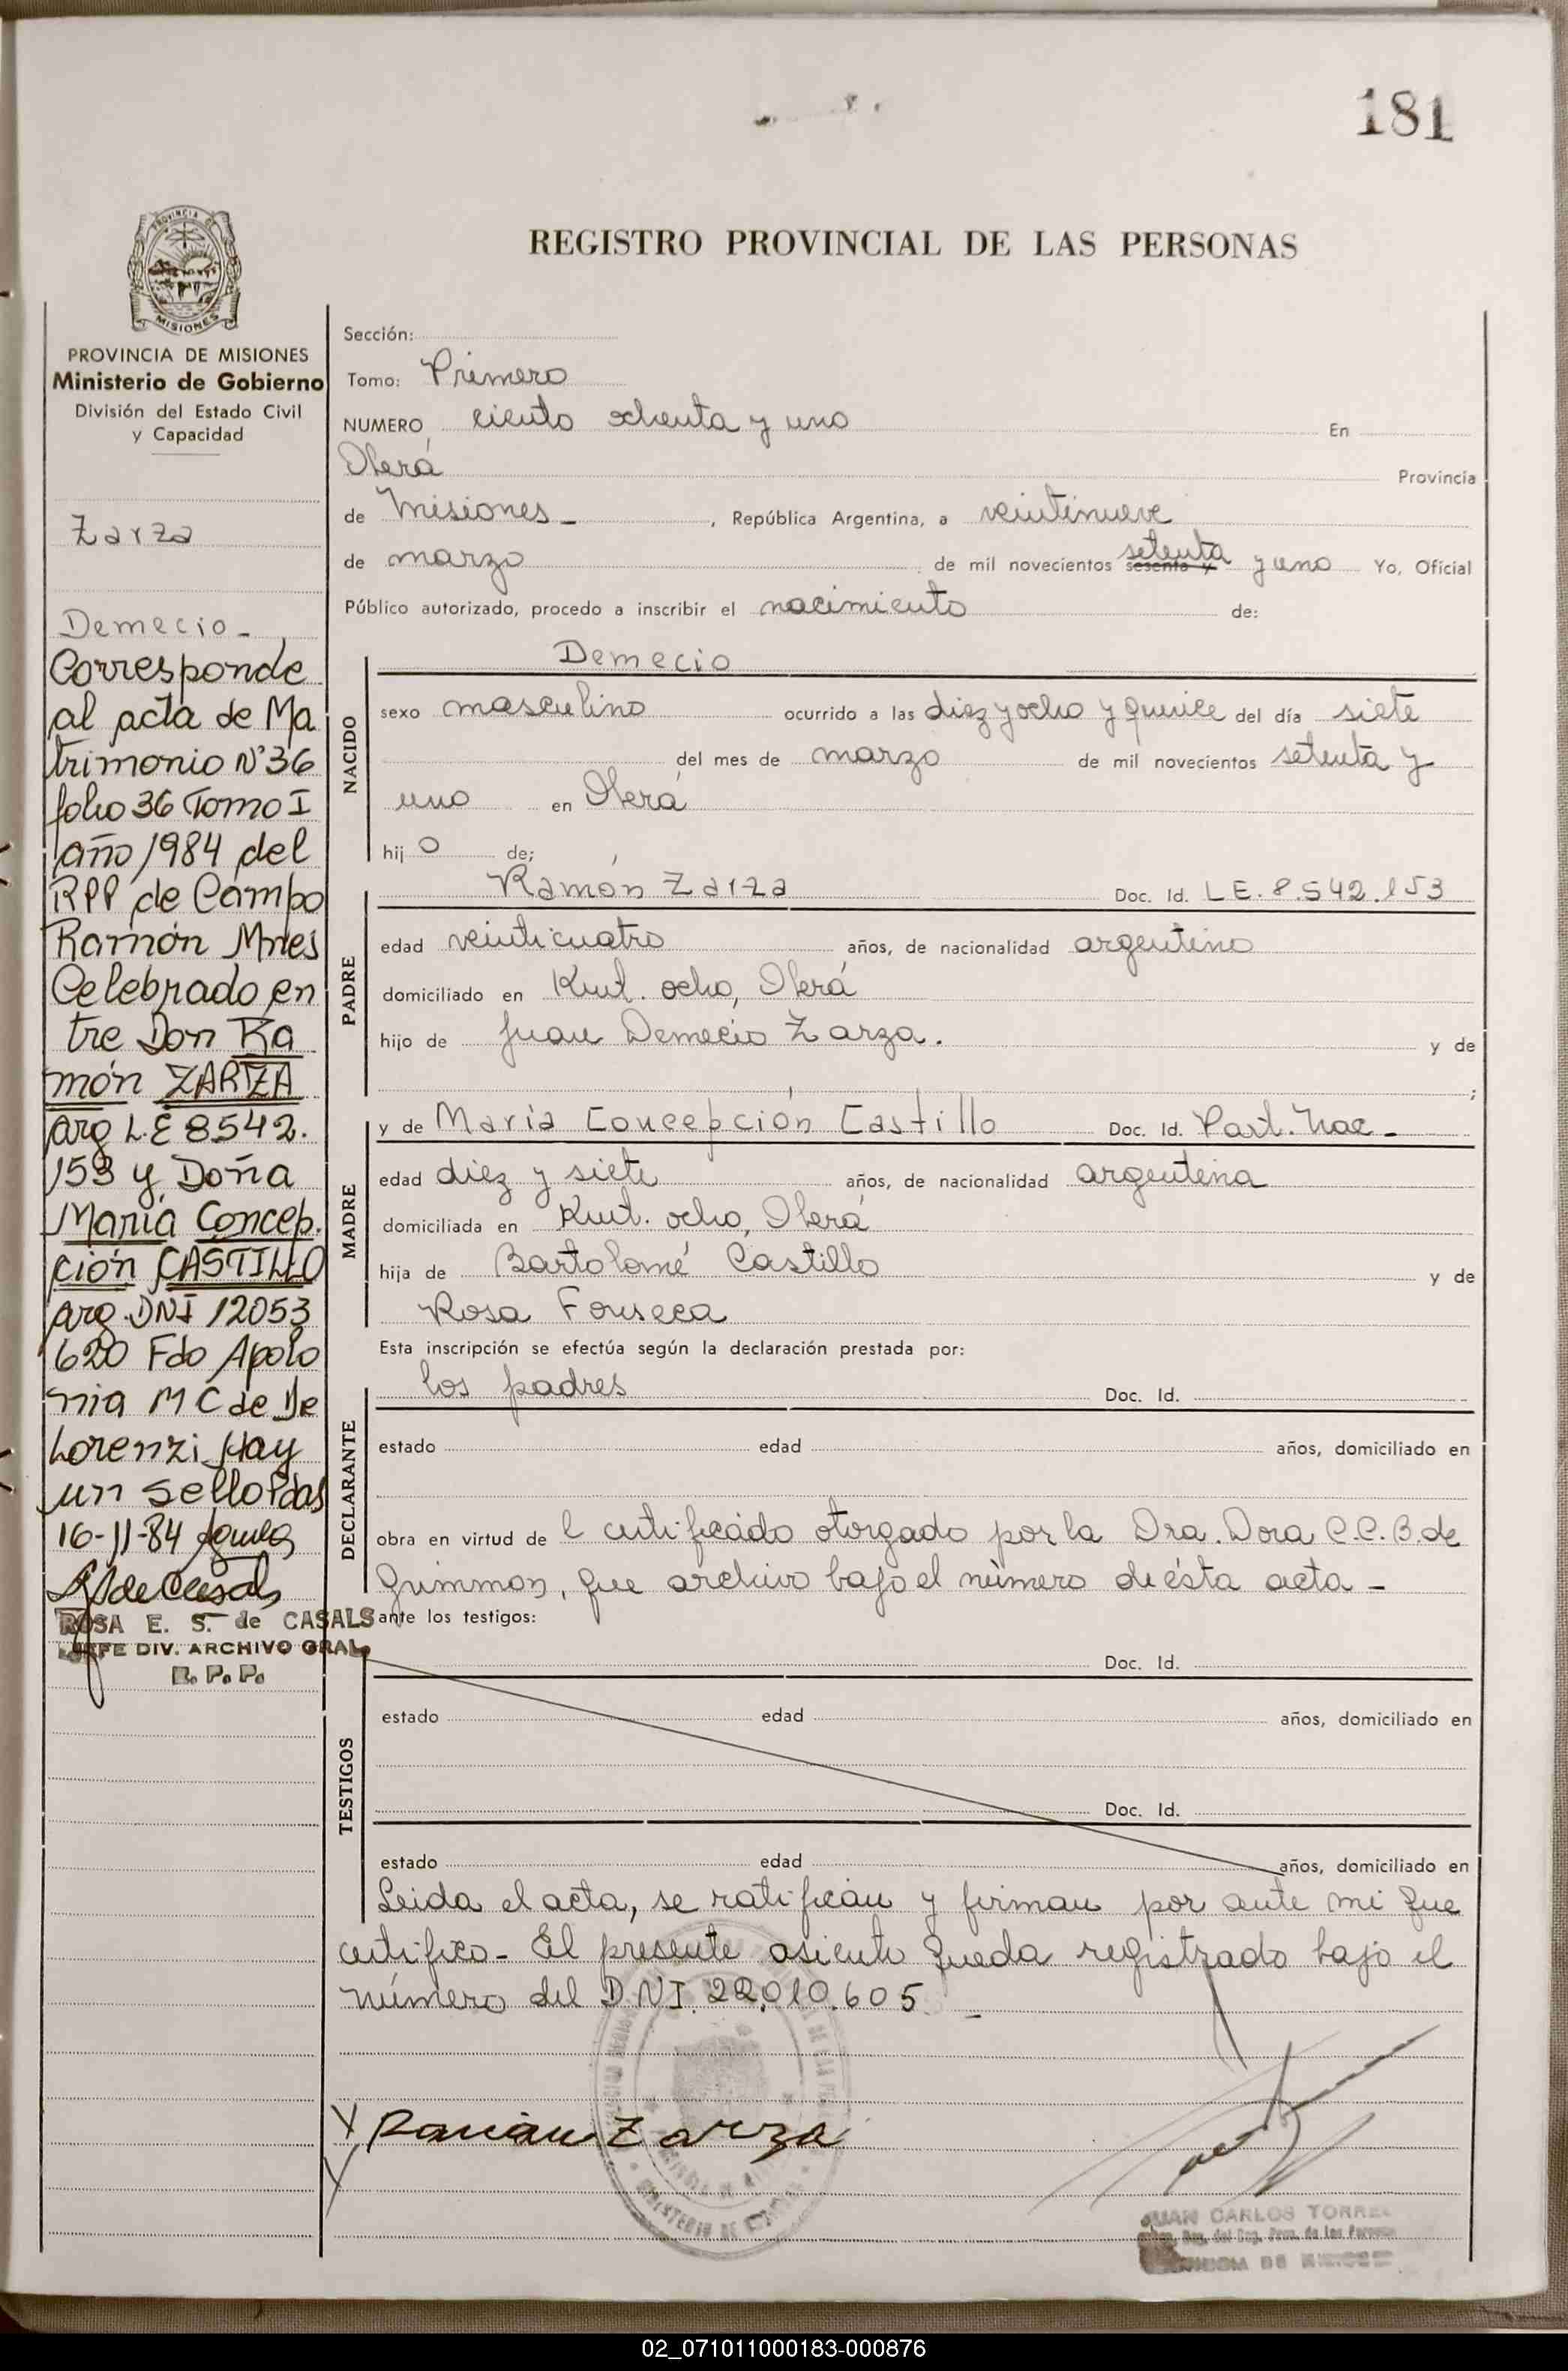 181
REGISTRO PROVINCIAL DE LAS PERSONAS
PROVINCIA DE
MISIONES
PROVINCIA DE MISIONES
Ministerio de Gobierno
División del Estado Civil
y Capacidad
Zarza
Demecio -
Corresponde
al acta de Ma
trimonio Nº 36
folio 36 Tomo I
año 1984 del
RPP de Campo
Ramón Mnes
Celebrado en
tre Don Ra
món ZARZA
arg L.E 8542.
153 y Doña
María Concep.
ción CASTILLO
arg. DNI 12053
620 Fdo Apolo
nia M C de De
Lorenzi Hay
un sello Pdas
16-11-84
ROSA E. S. de CASALS
JEFE DIV. ARCHIVO GRAL.
R. P. P.
Sección:
Tomo: Primero
NUMERO ciento ochenta y uno En
Oberá Provincia
de Misiones - , República Argentina, a veintinueve
de marzo de mil novecientos sesenta y setenta y uno Yo, Oficial
Público autorizado, procedo a inscribir el nacimiento de:
NACIDO
Demecio
sexo masculino ocurrido a las diez y ocho y quince del día siete
del mes de marzo de mil novecientos setenta y
uno en Oberá
hij o de;
PADRE
Ramón Zarza Doc. Id. L.E. 8.542.153
edad veinticuatro años, de nacionalidad argentino
domiciliado en Kmt. ocho, Oberá
hijo de Juan Demecio Zarza. y de
;
MADRE
y de María Concepción Castillo Doc. Id. Part. Nac -
edad diez y siete años, de nacionalidad argentina
domiciliada en Kmt. ocho, Oberá
hija de Bartolomé Castillo y de
Rosa Fonseca
Esta inscripción se efectúa según la declaración prestada por:
DECLARANTE
los padres Doc. Id.
estado edad años, domiciliado en
obra en virtud de l certificado otorgado por la Dra. Dora C.C.B. de
Grimmon, que archivo bajo el número de ésta acta -
ante los testigos:
TESTIGOS
Doc. Id.
estado edad años, domiciliado en
Doc. Id.
estado edad años, domiciliado en
Leida el acta, se ratifican y firman por ante mi que
certifico - El presente asiento queda registrado bajo el
número del D.N.I. 22.010.605 -
Ramón Zarza
JUAN CARLOS TORRES
02_071011000183-000876